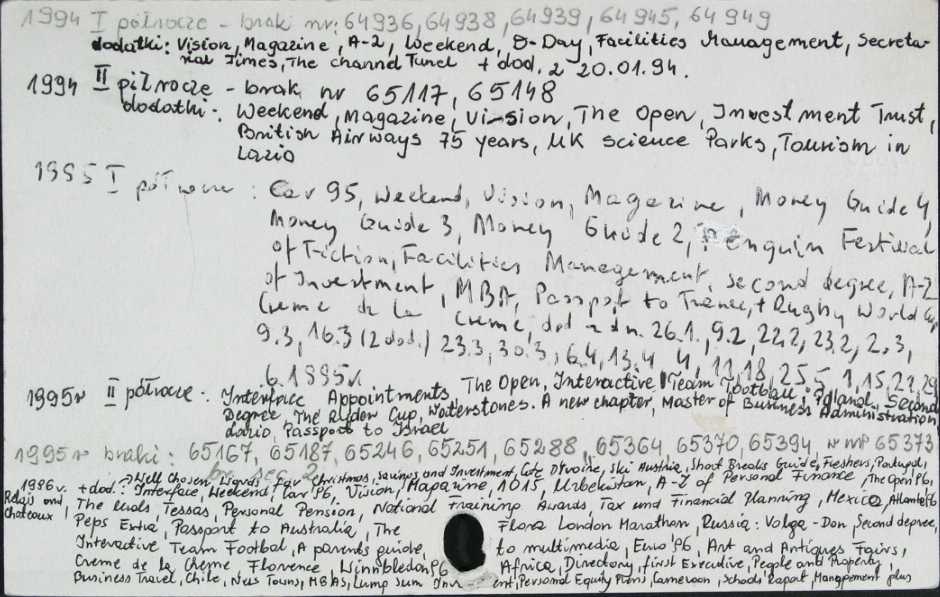 1994 I półrocze - braki nr. 64936, 64938, 64939, 64945, 64949
dodatki: Vision, Magazine, A-2, Weekend, D-Day, Facilities Management, Secreta-
rial Times, The channel Tunel + dod. z 20.01.94.
1994 II półrocze - brak nr 65117, 65148
dodatki: Weekend, Magazine, Vi-sion, The Open, Investment Trust,
British Airways 75 years, UK science Parks, Tourism in
Lazio
1995 I półrocze : Car 95, Weekend, Vision, Magazine, Money Guide 4,
Money Guide 3, Money Guide 2, Penguin Festival
of Fiction, Facilities Management, second degree, A-Z
of Investment, MBA, Passport to France, + Rugby World Cup,
Creme de la Creme, dod z dn. 26.1., 9.2, 22.2, 23.2, 2.3,
9.3, 16.3 (2 dod.) 23.3, 30.3, 6.4, 13.4, 11, 18, 25.5, 1, 15, 22, 29
.6.1995r.
1995r II półrocze: Interface Appointments, The Open, Interactive Team Football, Poland, Second
Degree, The Ryder Cup, Waterstones. A new chapter, Master of Business Administration
Lazio, Passport to Israel
1995r braki: 65167, 65187, 65246, 65251, 65288, 65364, 65370, 65394, 65373
Well Chosen Words, For Christmas, savings and Investment, Cote D'Ivoire, Ski Austria, Short Breaks Guide, Freshers, Portugal,
1996r. + dod.: Interface, Weekend, Car 96, Vision, Magazine, 1015, Uzbekistan, A-Z of Personal Finance, The Open 96,
Relais and Chateaux, Tessas, Personal Pension, National Training Awards, Tax and Financial Planning, Mexico, Atlanta 96
Peps Extra, Passport to Australia, The Flora London Marathon, Russia: Volga-Don, Second degree,
Interactive Team Footbal, A parents guide, to multimedia, Euro 96, Art and Antiques Fairs,
Creme de la Creme Florence, Wimbledon 96 Africa, Directory, first Executive, People and Property,
Business Travel, Chile, News Towns, MBAs, Lump sum Inv ent, Personal Equity Plans, Cameroon, Schools Raport Mangpement plus